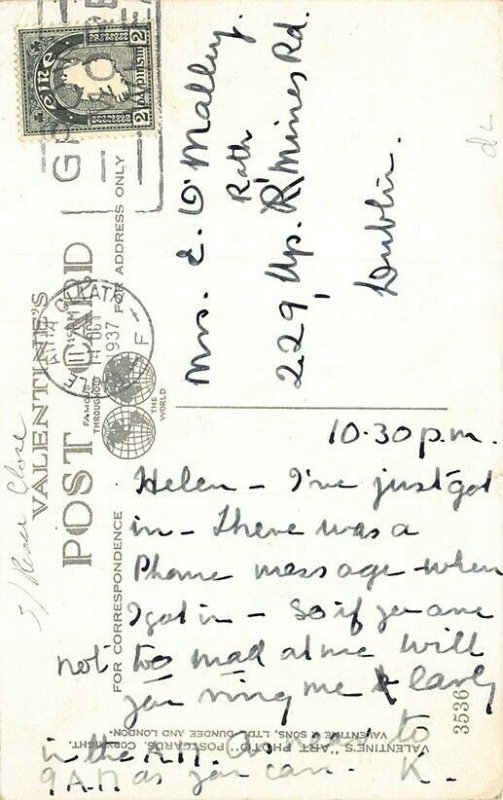 VALENTINE'S
POST CARD
FAMOUS
THROUGHOUT
THE
WORLD
FOR CORRESPONDENCE
FOR ADDRESS ONLY
éire
2 2
1937
Mrs. E. O'Malley.
Rath
229, Up. R, Mines Rd.
Dublin.
10.30 p.m.
Helen – I've just got
in – there was a
Phone message when
I got in – So if you are
not too mad at me will
you ring me early
in the A.M. as near to
9 A.M as you can. K.
VALENTINE'S "ART PHOTO" POSTCARDS, COPYRIGHT.
VALENTINE & SONS, LTD., DUNDEE AND LONDON.
3536